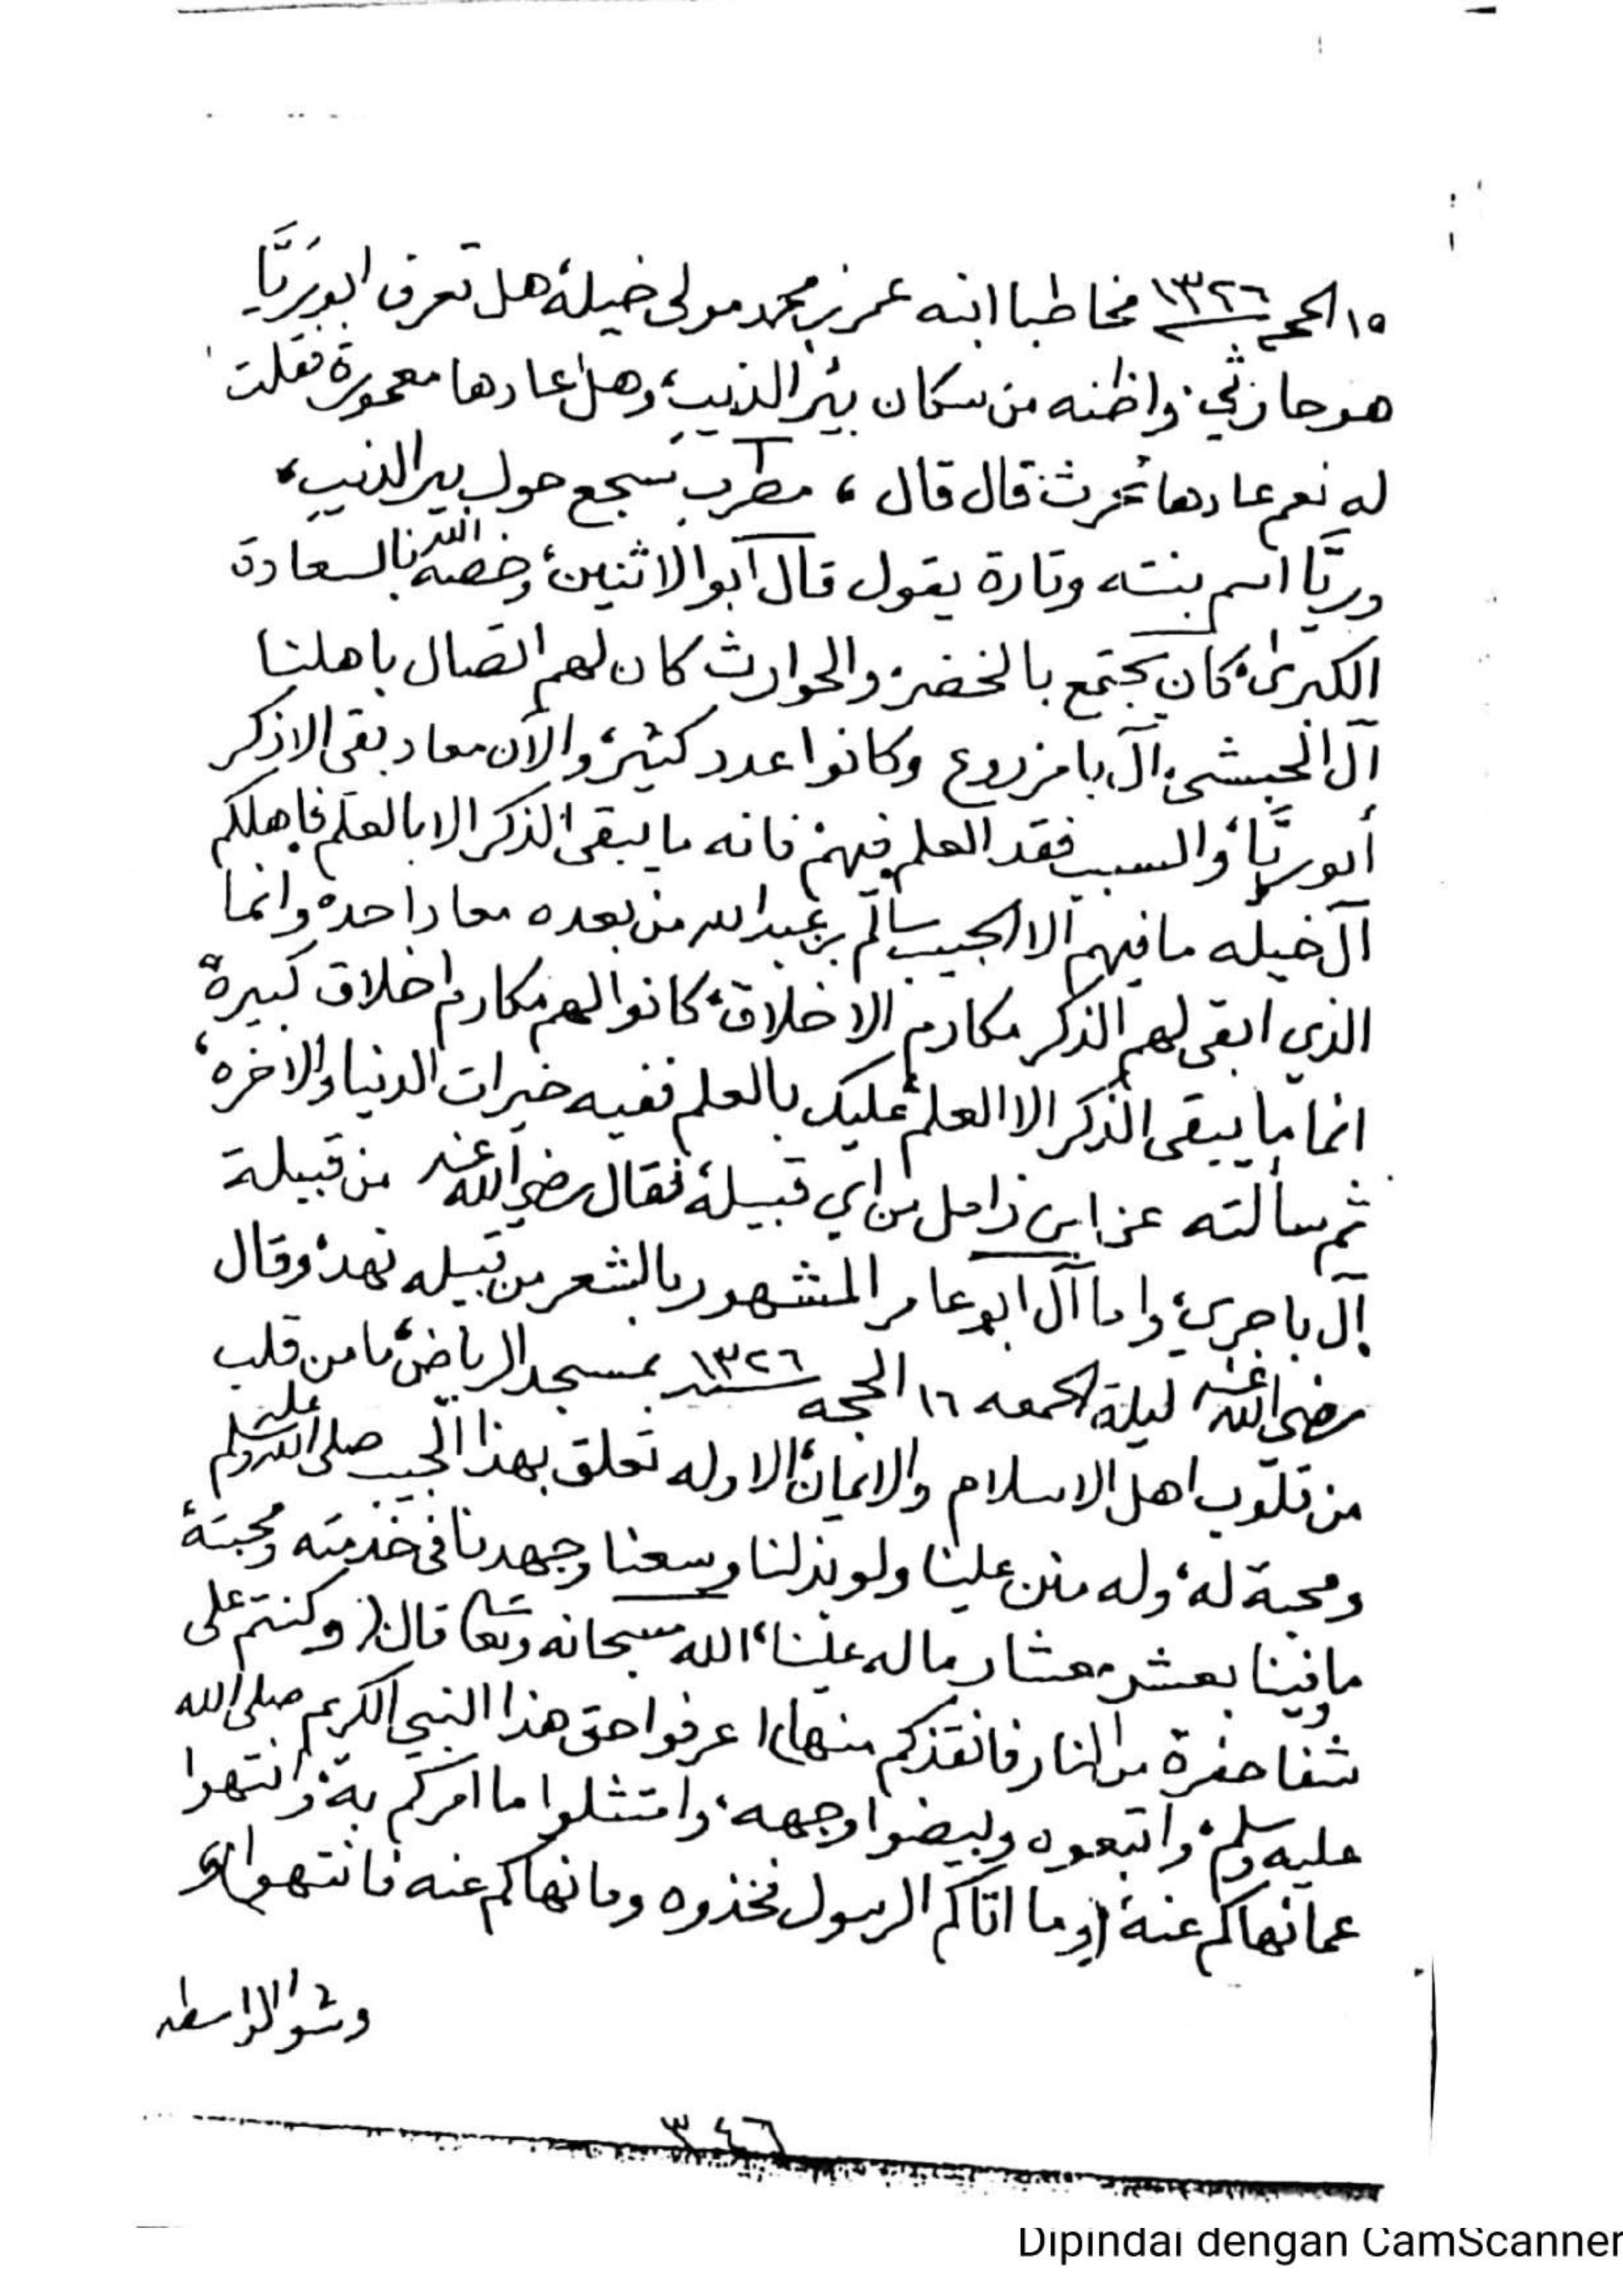 ١٥ الحجه ١٣٢٦ مخاطبا ابنه عمر بن محمد مولى خيله، هل تعرف ابو رَيَّا
هو حارثي، واظنه من سكان بير الذيب، وهل عادها معموره، فقلت
له نعم عادها تحرث، قال قال ، مطرب سجع حول بير الذيب،
وريَّا اسم بنته وتارة يقول قال ابوالاثنين، وخصه الله بالسعادة
الكبرى، كان يجتمع بالخضر، والحوارث كان لهم اتصال باهلنا
آل الحبشي، آل بامزروع وكانوا عدد كثير، والآن معاد بقي الا ذكر
أبو ريَّا، والسبب فقد العلم فيهم، فانه ما يبقى الذكر الا بالعلم، فاهلكم
آل خيله ما فيهم الا الحبيب سالم بن عبدالله من بعده معاد احد، وانما
الذي ابقى لهم الذكر مكارم الاخلاق، كانوا لهم مكارم اخلاق كبيرة
انما ما يبقى الذكر الا العلم، عليك بالعلم ففيه خيرات الدنيا والاخره،
ثم سألته عن ابن زامل من اي قبيلة، فقال رضي الله عنه من قبيلة
آل باجري، واما آل ابو عامر المشهور بالشعر من قبيله نهد، وقال
رضي الله عنه ليلة الجمعه ١٦ الحجه سنه ١٣٢٦ بمسجد الرياض، ما من قلب
من قلوب اهل الاسلام والايمان، الا وله تعلق بهذا الحبيب صلى الله عليه وسلم
ومحبة له، وله منن علينا ولو بذلنا وسعنا وجهدنا في خدمته ومحبته،
ما فينا بعشر معشار ما له علينا، الله سبحانه وتعالى قال ( وكنتم على
شفا حفرة من النار فانقذكم منها) اعرفوا حق هذا النبي الكريم صلى الله
عليه وسلم، واتبعوه وبيضوا وجهه، وامتثلوا ما امركم به، وانتهوا
عما نهاكم عنه، (وما اتاكم الرسول فخذوه وما نهاكم عنه فانتهوا)
وشو الواسطه
٣٤٦
Dipindai dengan CamScanner